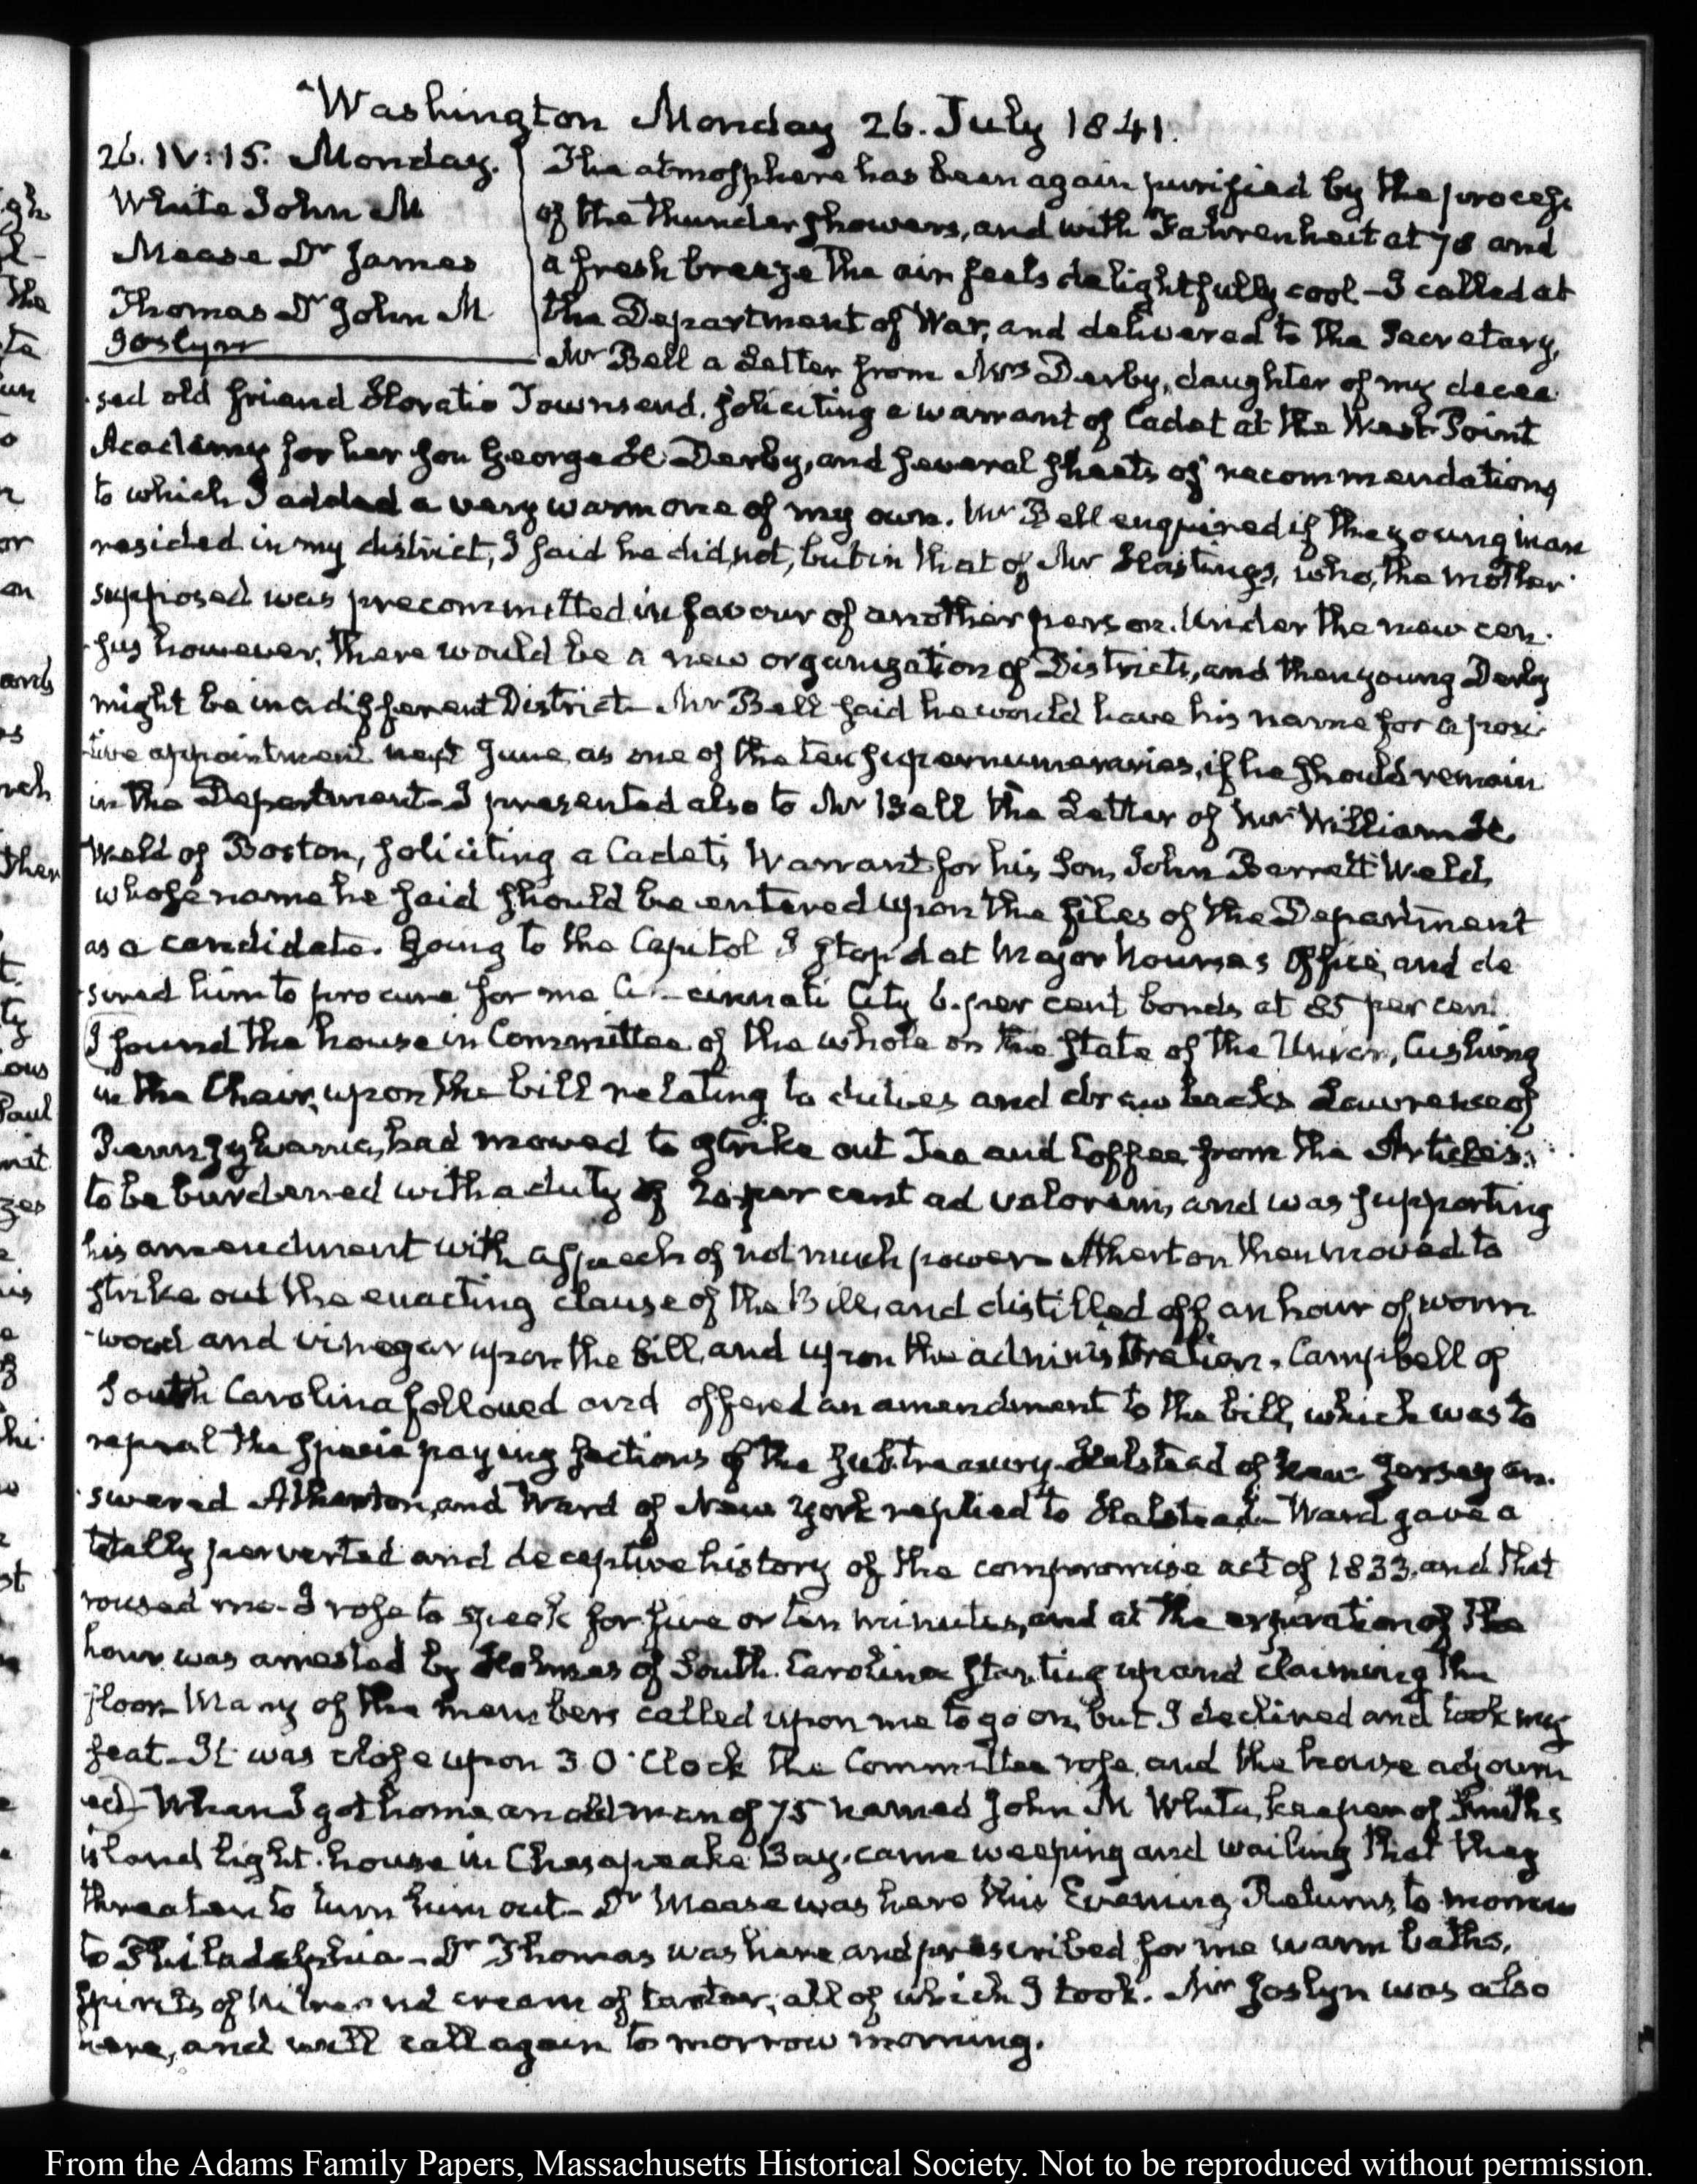 Washington Monday 26. July 1841.
26. IV:15. Monday.
White John M
Mease Dr James
Thomas Dr John M
Joslyn
The atmosphere has been again purified by the process
of the thunder showers, and with Fahrenheit at 78 and
a fresh breeze the air feels delightfully cool - I called at
the Department of War, and delivered to the Secretary,
Mr Bell a Letter from Mrs Derby, daughter of my decea
sed old friend Horatio Townsend, soliciting a warrant of Cadet at the West-Point
Academy for her son George H Derby, and several sheets of recommendations
to which I added a very warm one of my own. Mr Bell enquired if the young man
resided in my district, I said he did not, but in that of Mr Hastings, who, the mother
supposed was precommitted in favour of another person. Under the new cen-
-sus however, there would be a new organization of Districts, and then young Derby
might be in a different District - Mr Bell said he would have his name for a posi-
-tive appointment next June, as one of the ten supernumeraries, if he should remain
in the Department - I presented also to Mr Bell the Letter of Mr William H.
Weld of Boston, soliciting a Cadet's Warrant for his Son, John Barrett Weld,
whose name he said should be entered upon the files of the Department
as a candidate. Going to the Capitol I stop'd at Major Nourse's Office, and de
-sired him to procure for me Cincinnati City 6. per cent bonds at 85 per cent.
I found the house in Committee of the whole on the state of the Union, Cushing
in the Chair, upon the bill relating to duties and drawbacks Lawrence of
Pennsylvania, had moved to strike out Tea and Coffee from the Articles
to be burdened with a duty of 20 per cent ad valorem, and was supporting
his amendment with a speech of not much power - Atherton then moved to
strike out the enacting clause of the Bill, and distilled off an hour of worm
-wood and vinegar upon the bill, and upon the administration. Campbell of
South Carolina followed and offered an amendment to the bill, which was to
repeal the specie paying sections of the subtreasury - Halstead of New-Jersey an-
swered Atherton, and Ward of New York replied to Halstead - Ward gave a
totally perverted and deceptive history of the compromise act of 1833, and that
roused me - I rose to speak for five or ten minutes, and at the expiration of the
hour was arrested by Holmes of South-Carolina starting up and claiming the
floor - Many of the members called upon me to go on, but I declined and took my
seat - It was close upon 3 O'Clock the Committee rose, and the house adjourn
ed) - When I got home an old man of 75 named John M White, keeper of Smith's
island light-house in Chesapeake Bay, came weeping and wailing that they
threaten to turn him out - Dr Mease was here this Evening, Returns to morrow
to Philadelphia - Dr Thomas was here and prescribed for me warm baths,
spirits of nitre and cream of tartar, all of which I took. Mr Joslyn was also
here, and will call again to morrow morning.
From the Adams Family Papers, Massachusetts Historical Society. Not to be reproduced without permission.